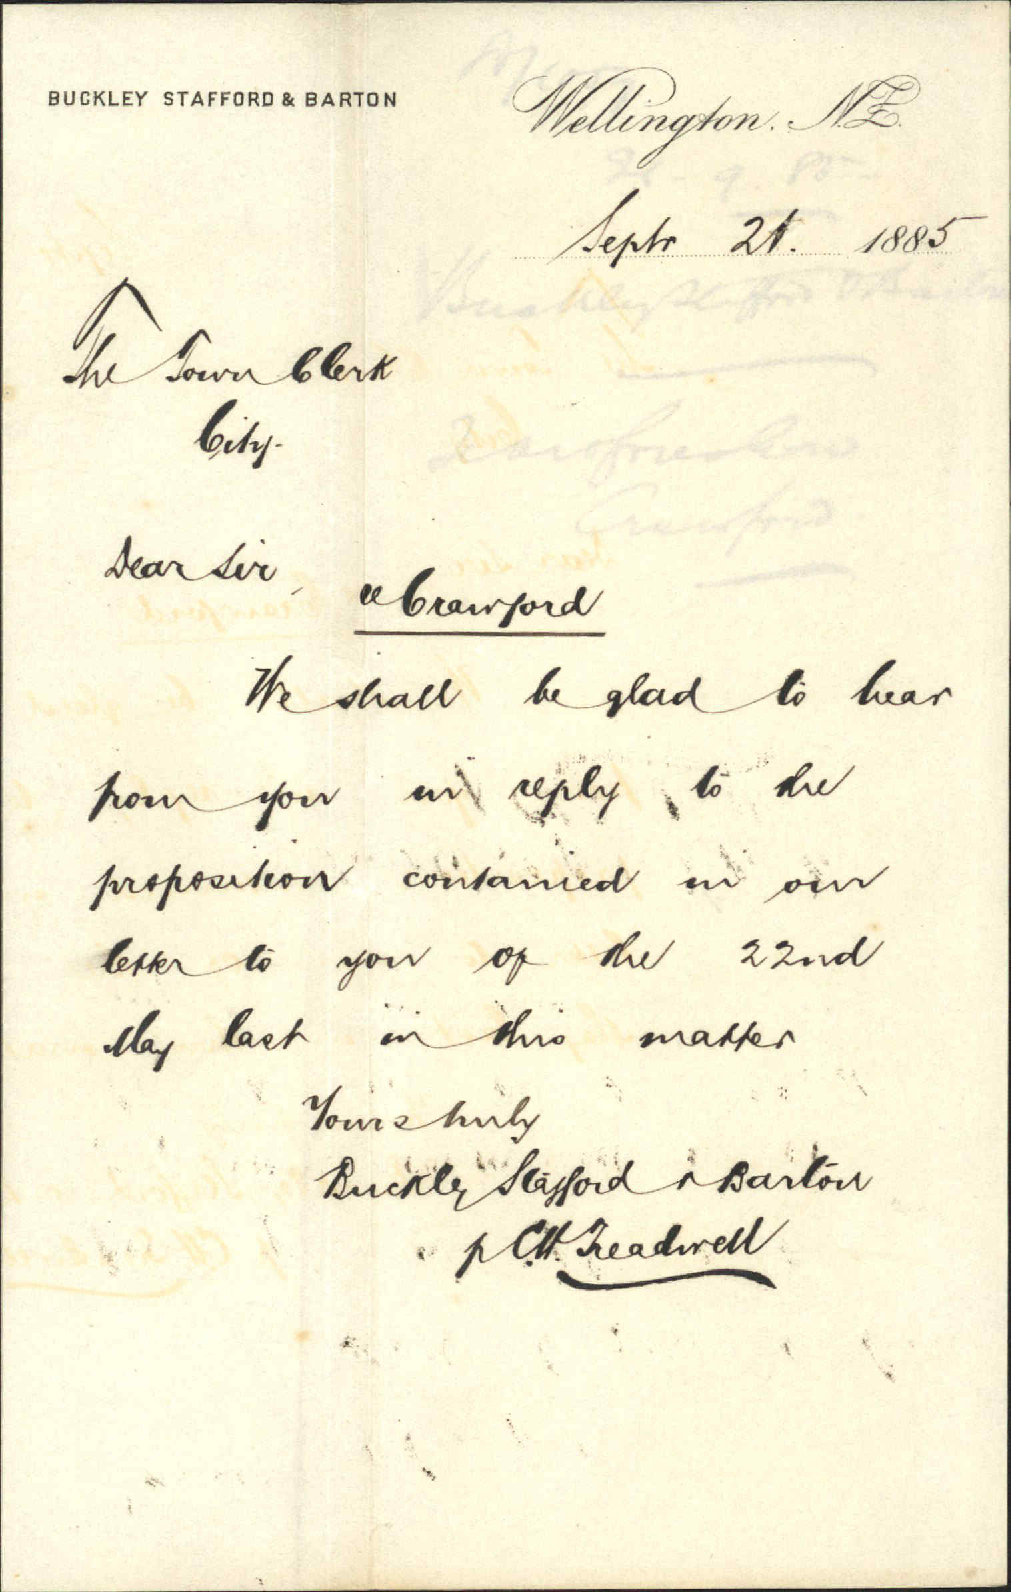 BUCKLEY STAFFORD & BARTON
Wellington. N.Z.
Septr 21. 1885
The Town Clerk
City.
Dear Sir,
re Crawford
We shall be glad to hear
from you in reply to the
proposition contained in our
letter to you of the 22nd
May last in this matter
Yours truly
Buckley Stafford & Barton
p C.H. Treadwell